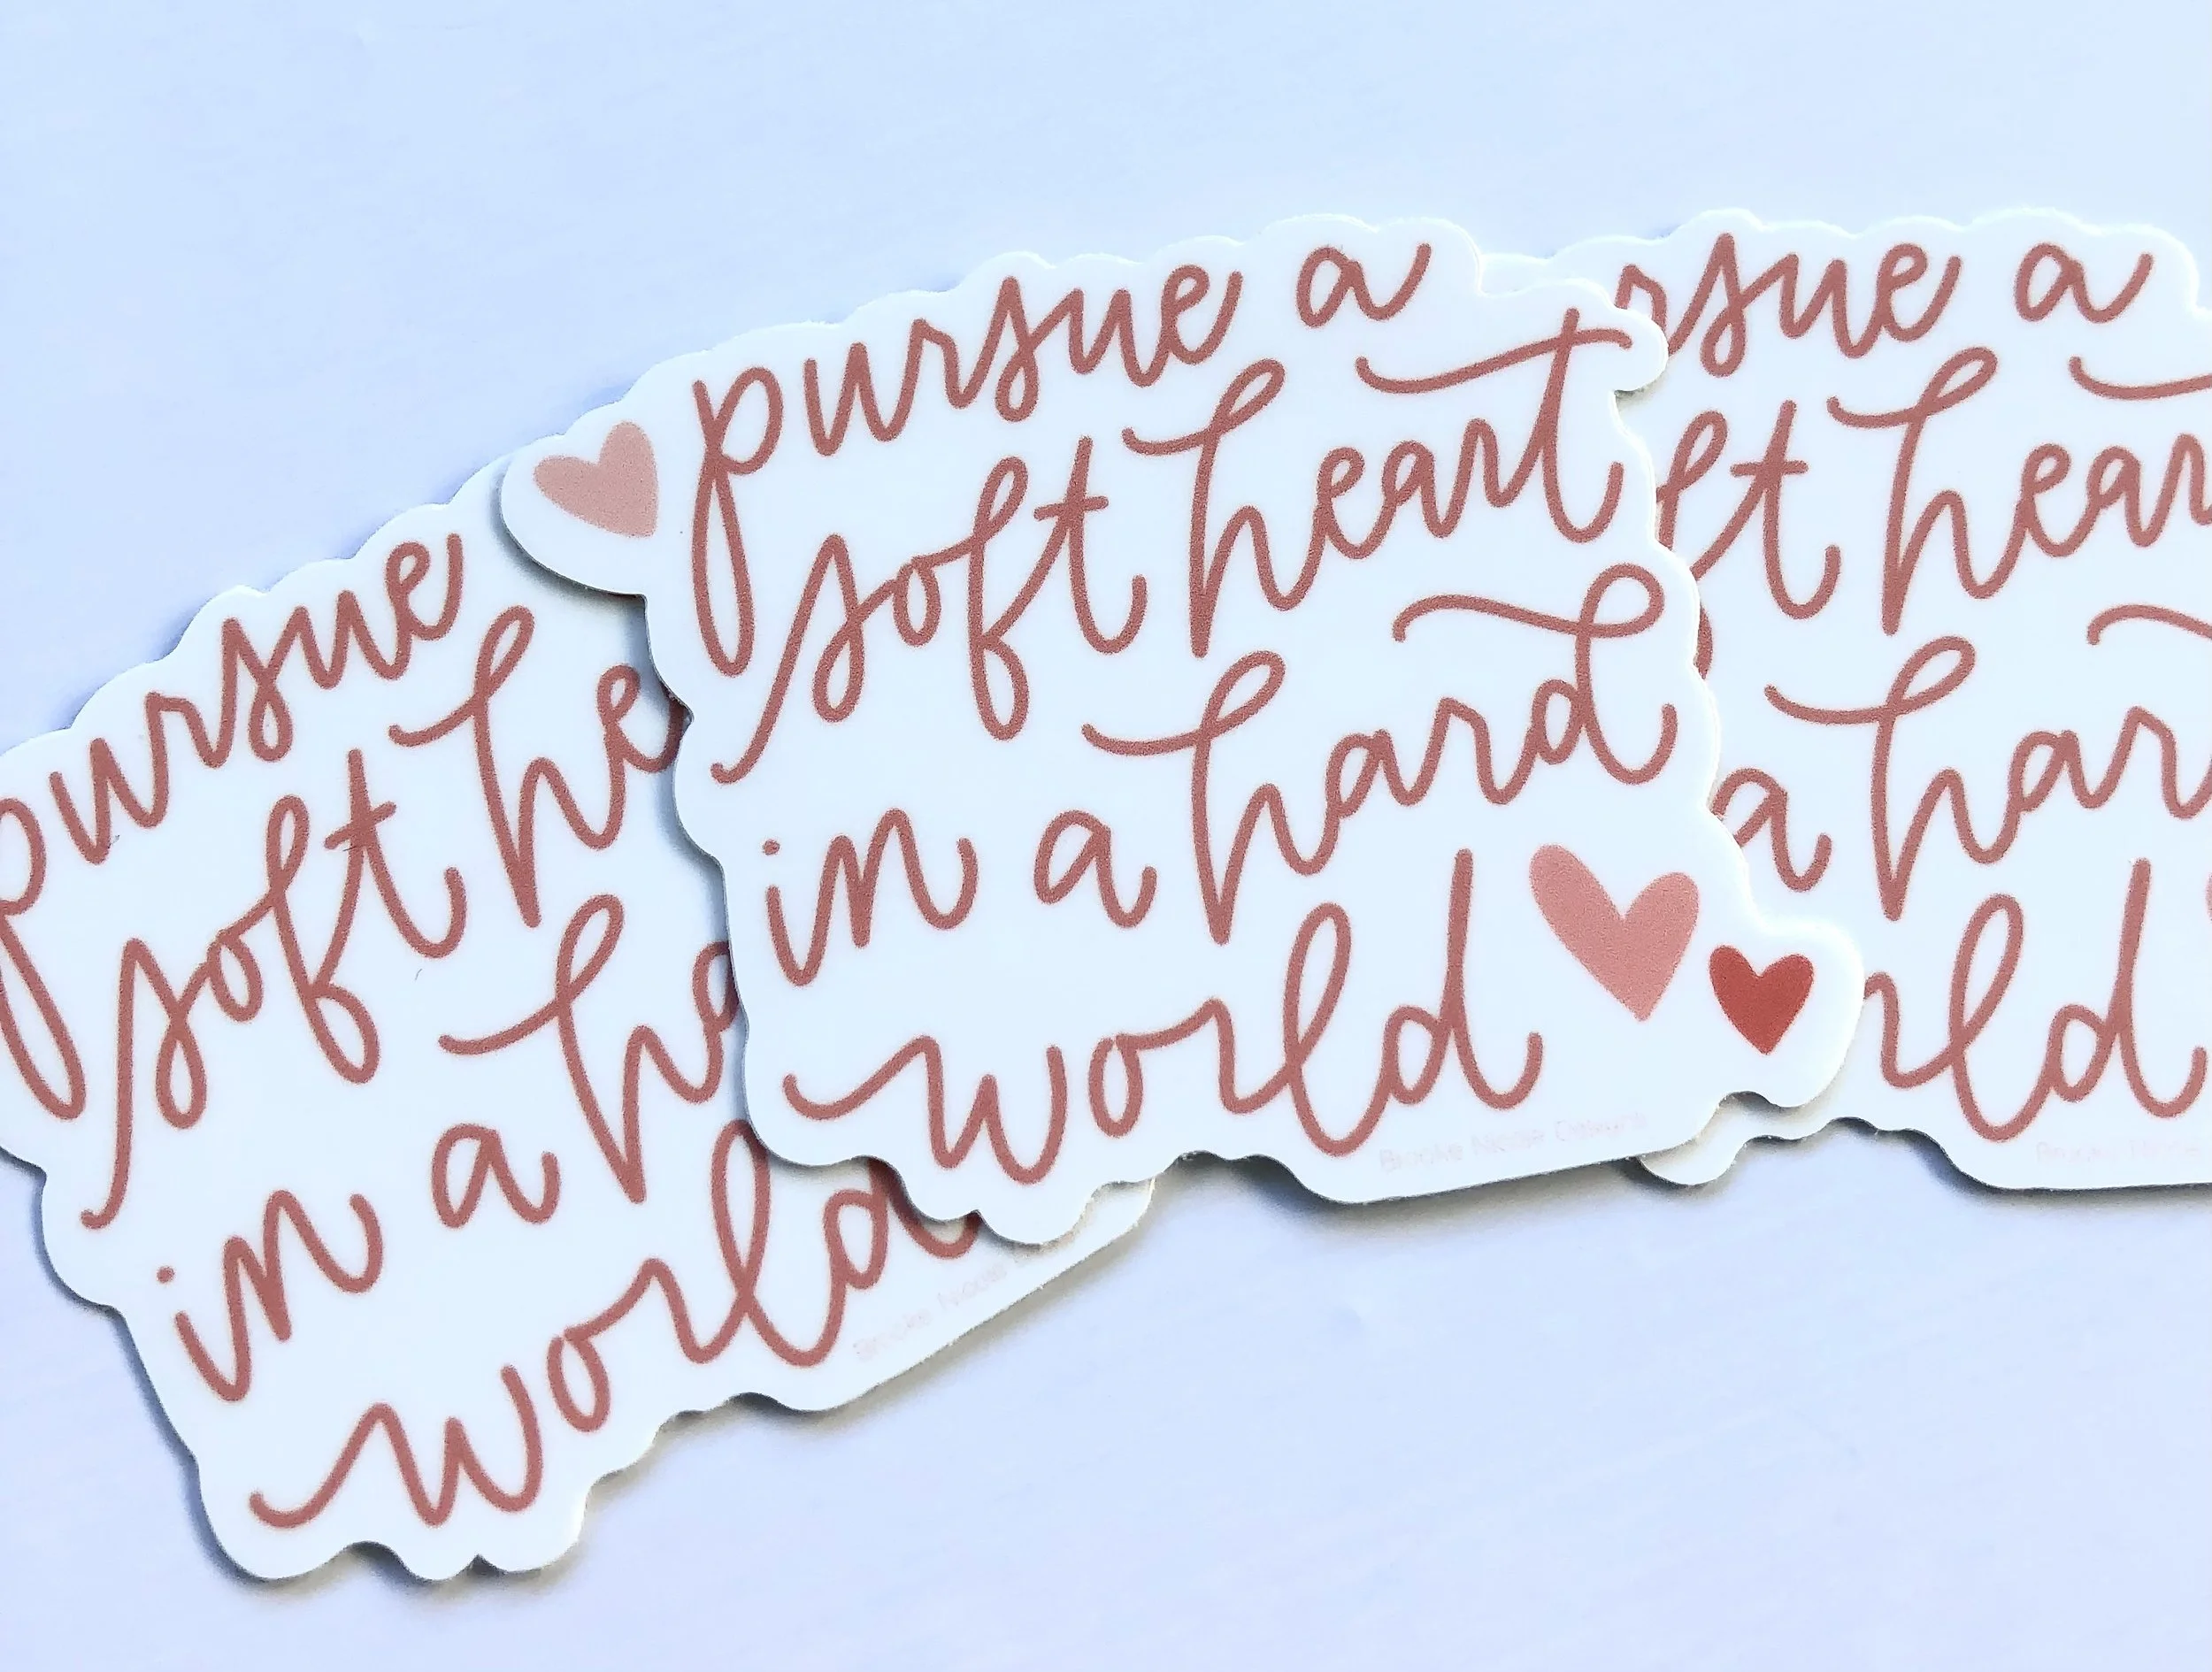 pursue
soft he
in a ha
world
Brooke Nicole
pursue a
soft heart
in a hard
world
Brooke Nicole Designs
rsue a
ft hear
a har
rld
Brooke Nicole